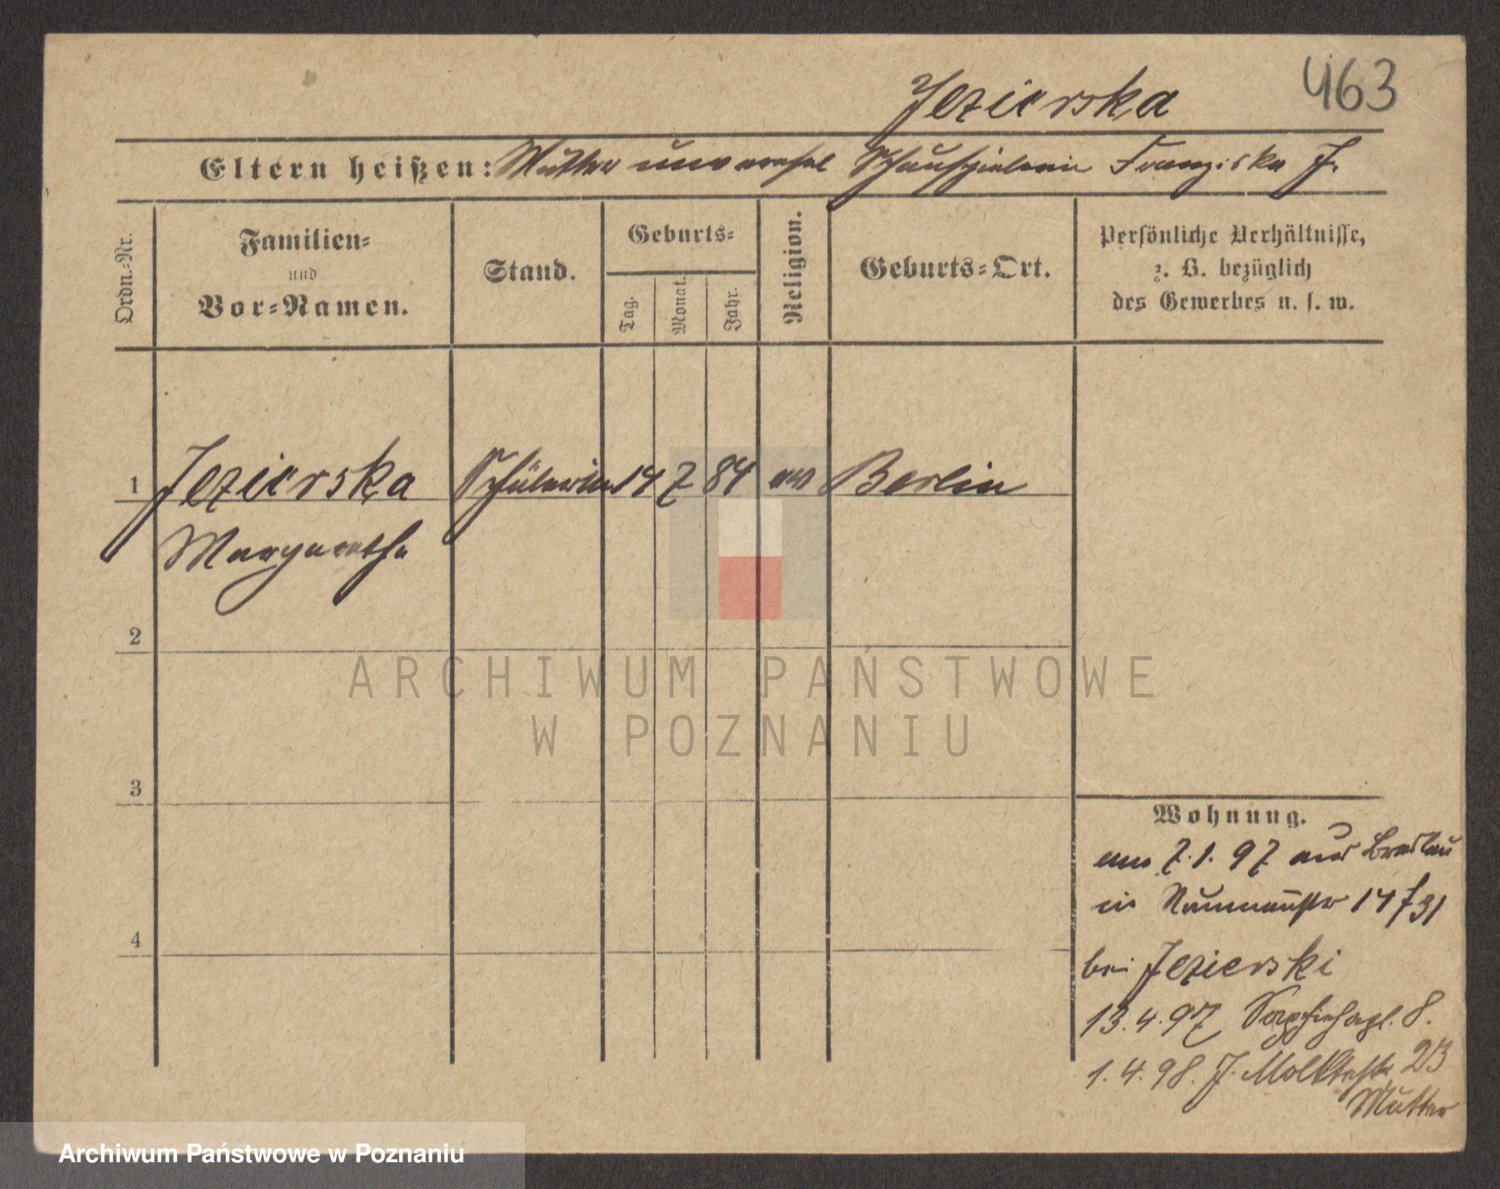 463
Jezierska
Eltern heißen: Mutter unverehel Schauspielerin Franziska J.
Ordn.-Nr.
Familien-
und
Vor-Namen.
Stand.
Geburts-
Tag.
Monat.
Jahr.
Religion.
Geburts-Ort.
Persönliche Verhältnisse,
z. B. bezüglich
des Gewerbes u. s. w.
1 Jezierska Schülerin 14 7 84 ev Berlin
Margarethe
2
ARCHIWUM PAŃSTWOWE
W POZNANIU
3
Wohnung.
am 7.1.97 aus Breslau
in Naumannstr 14/31
bei Jezierski
4
13.4.97 Sapiehapl. 8.
1.4.98. J. Moltkestr 2B
Mutter
Archiwum Państwowe w Poznaniu